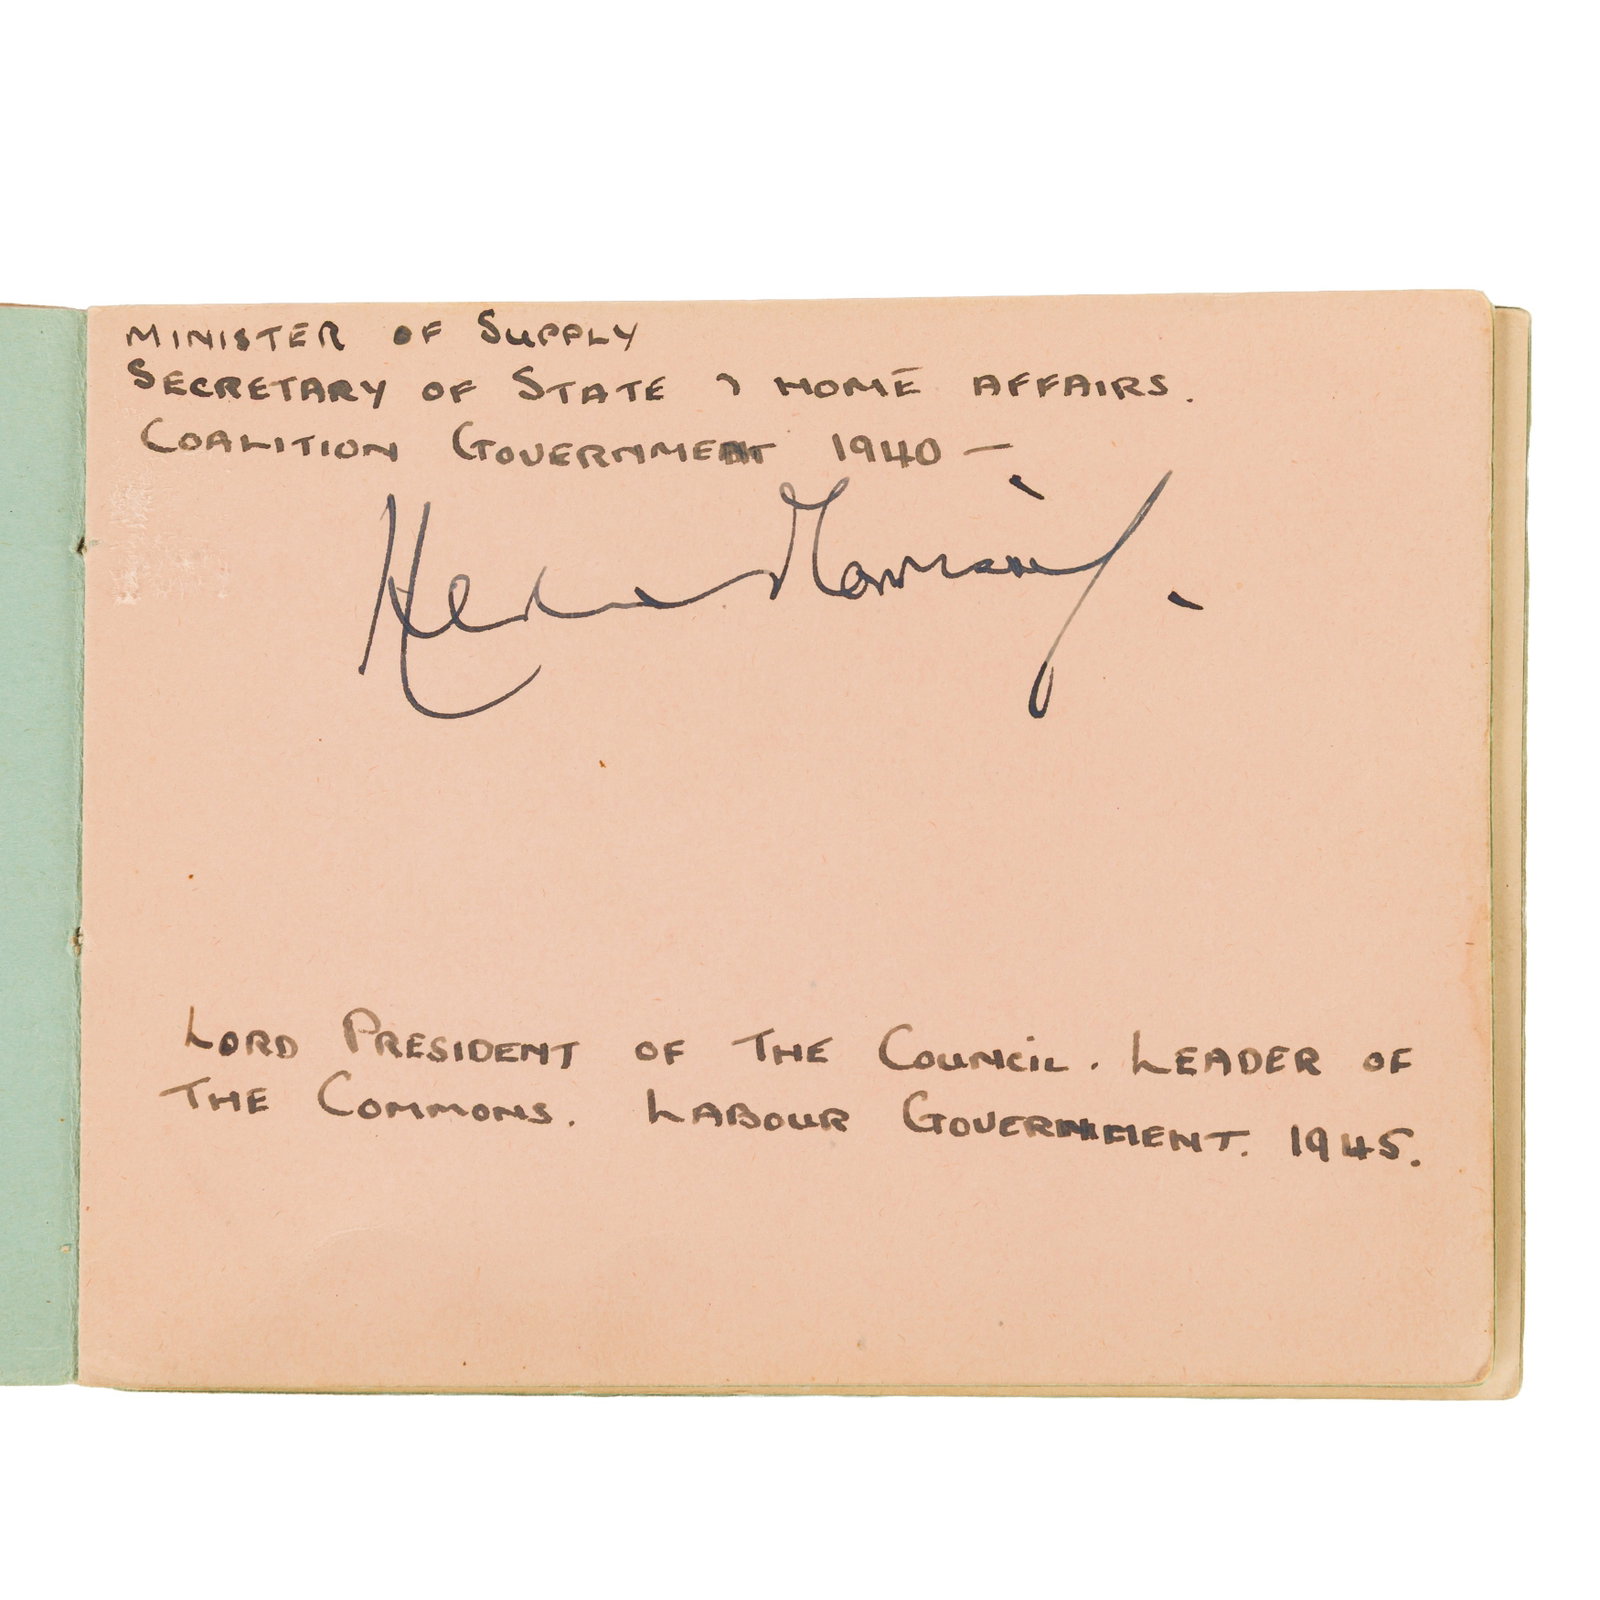 MINISTER OF SUPPLY
SECRETARY OF STATE ? HOME AFFAIRS.
COALITION GOVERNMENT 1940 —
Herbert Morrison.
LORD PRESIDENT OF THE COUNCIL. LEADER OF
THE COMMONS. LABOUR GOVERNMENT. 1945.